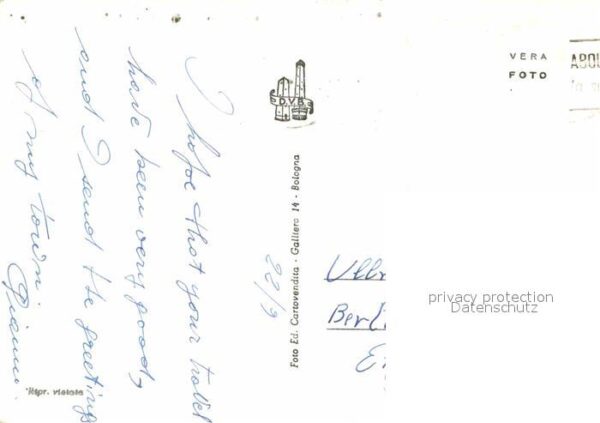 I hope that your travel
have been very good,
and I send the greetings
of my town.
Gianni.
22/9
Ripr. vietata
D.V.B.
Foto Ed. Cartovendita - Galliera 14 - Bologna
VERA
FOTO
privacy protection
Datenschutz